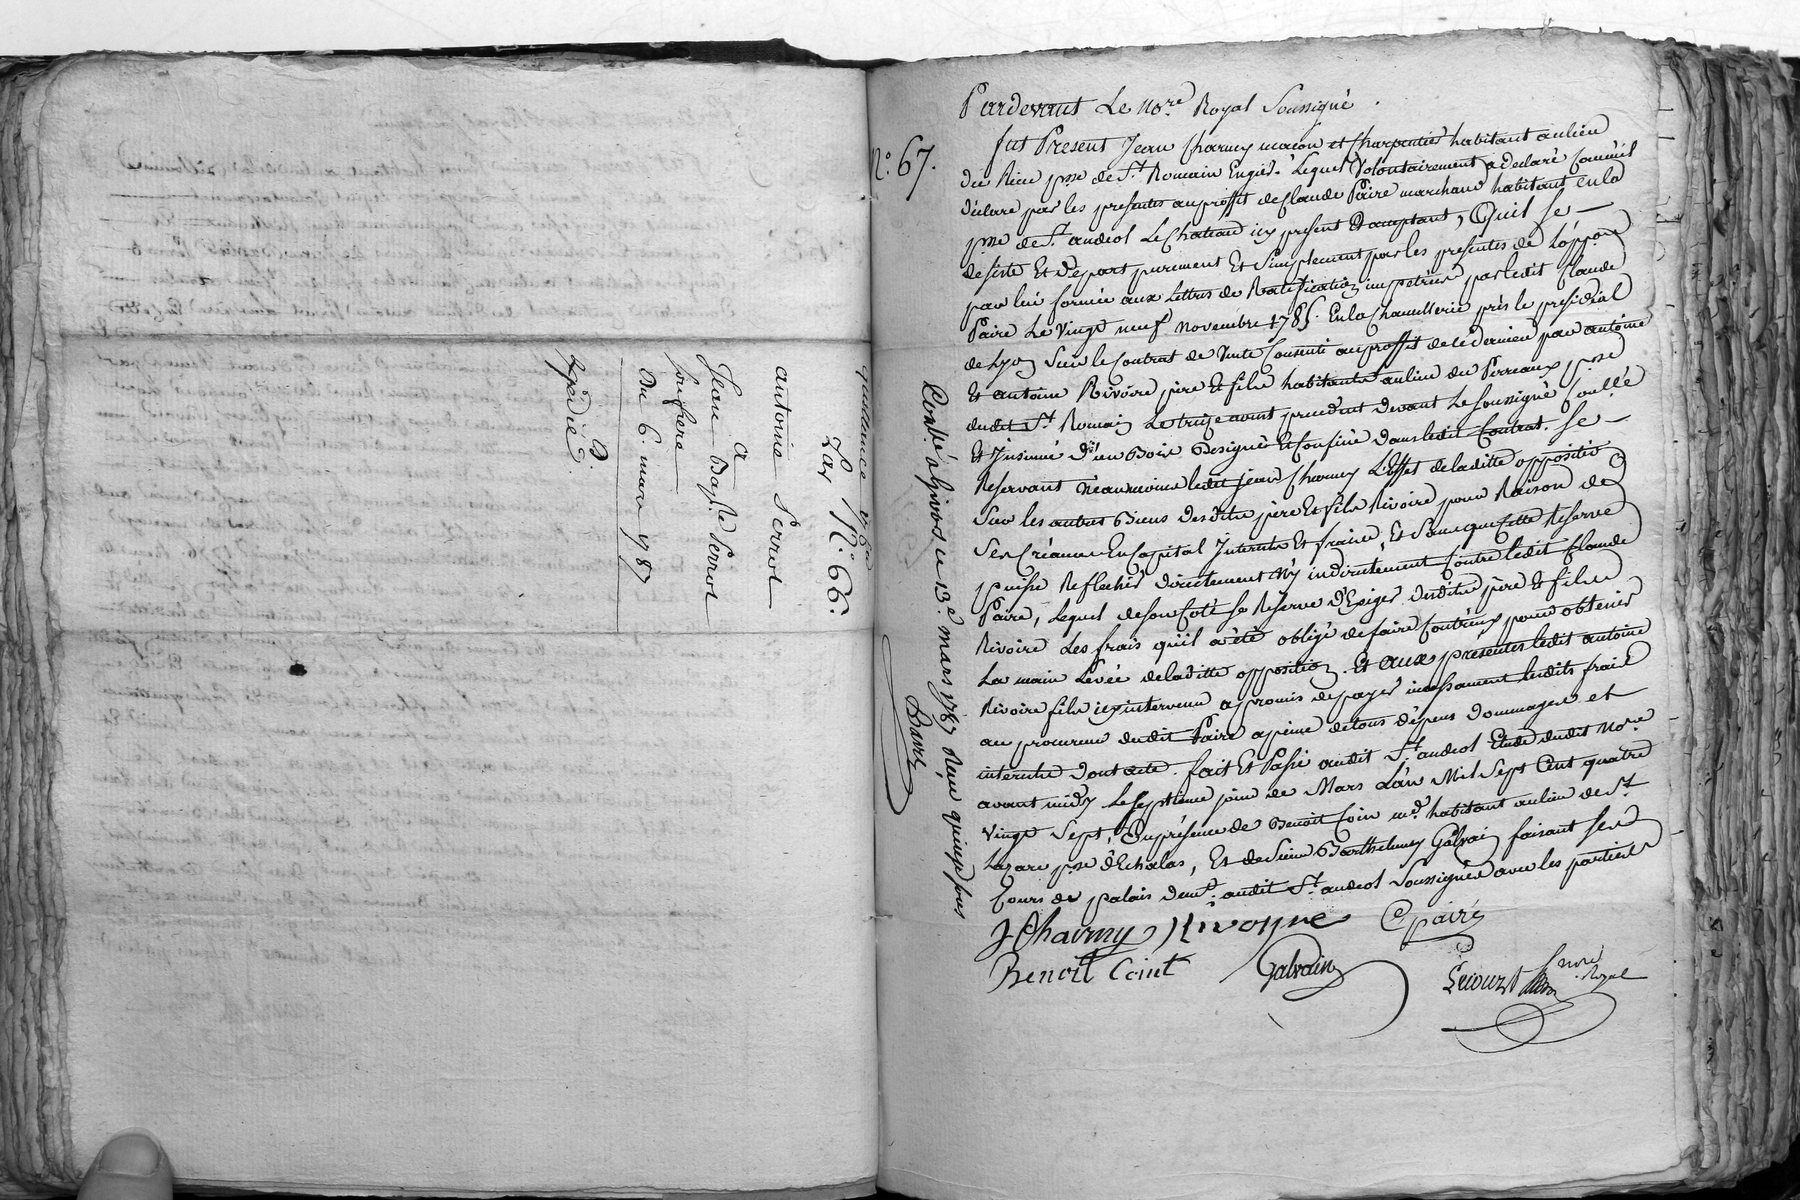 quittance
Par N.° 66.
antoine Perrol
a
Jean Bap.te Perrol
son frere
Du 6. mars 1787
B.
Expediée
N.° 67.
Pardevant Le No.re Royal Soussigné.
fut Present Jean Charmy macon et Charpentier habitant au lieu
du Rieu p.sse de S.t Romain Engier. Lequel Volontairement a declaré
declare par les presentes au proffit de Claude Paire marchand habitant en la
p.sse de S.t andeol Le Chateau icy present Et acceptant, Quil se
desiste Et depart purement Et Simplement par les presentes de L'oppo.on
par lui formée aux Lettres de Ratification impetrées par ledit Claude
Paire Le Vingt neuf novembre 1785. En la Chancellerie près le presidial
de Lyon Sur le Contrat de Vente Consenti au proffit de ce dernier par antoine
Et antoine Rivoire père Et fils habitants au lieu du Perreaux p.sse
dudit S.t Romain Le treize aoust precedent devant Le Soussigné Con.llé
Et Insinué d'un Bois Designé Et Confiné dans ledit Contrat. Se
Reservant Neanmoins ledit jean Charmy L'effet de laditte opposition
Sur les autres Biens desdits père Et fils Rivoire pour Raison de
Ses Créances En Capital Interets Et fraix, Et Sans que Cette Reserve
puisse Reflechir directement Ny indirectement Contre ledit Claude
Paire, Lequel de son Coté Se Reserve d'Exiger desdits père Et fils
Rivoire Les frais qu'il a été obligé de faire Contr'eux pour obtenir
La main Levée de laditte opposition. Et aux présentes ledit antoine
Rivoire fils icy intervenu a promis de payer incessament lesdits frais
au procureur dudit Paire a peine de tous depens dommages et
interets dont acte. fait Et Passé audit S.t andeol Etude dudit No.re
avant midy Le Septieme jour de Mars L'an Mil Sept Cent quatre
Vingt Sept, En présence de Benoit Coin m.d habitant au lieu de S.t
Lazare p.sse d'Echalas, Et de Sieur Barthelemy Galvain faisant Ses
Cours de palais dem.t audit S.t andeol Soussignés avec les parties
J Charmy Rivoyre C paire
Benoit Coint Galvain Lecourt nore Royal
Con.llé a Givors ce 13.e mars 1787 Reçu quinze sous